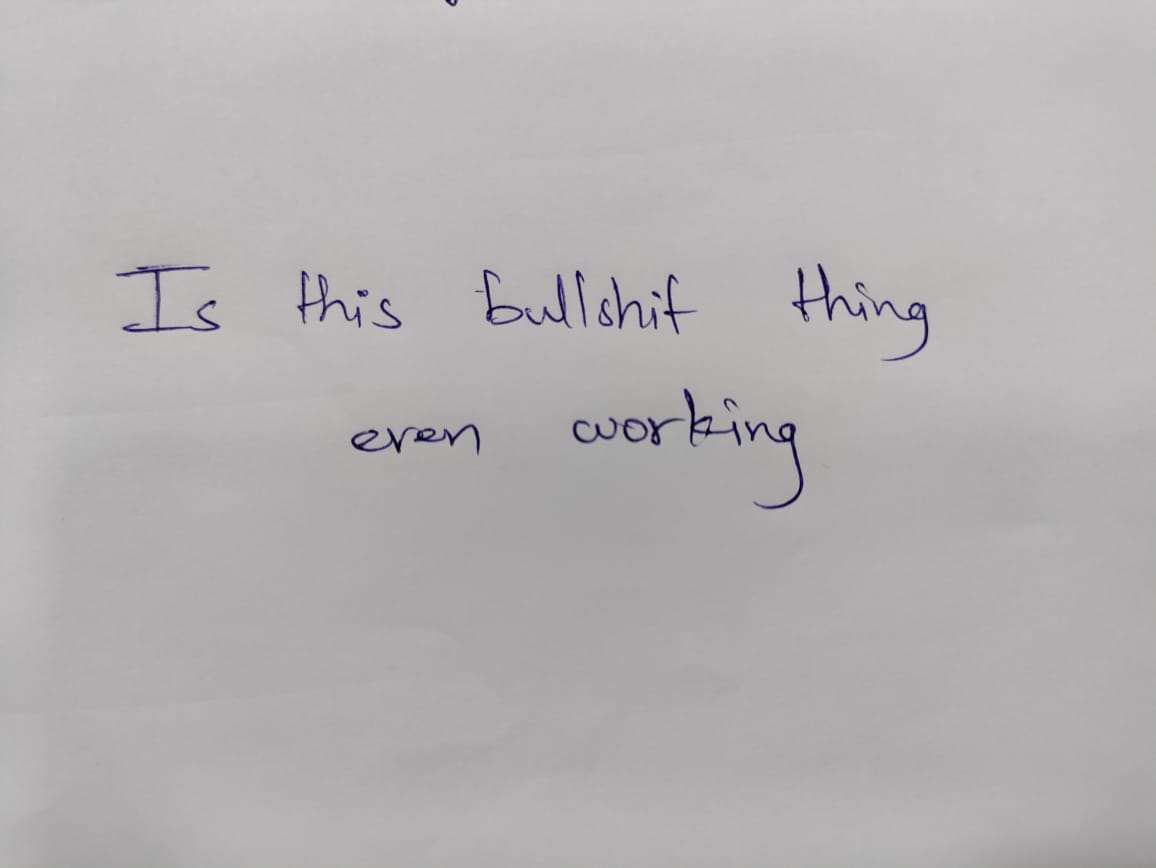 Is this bullshit thing
even working